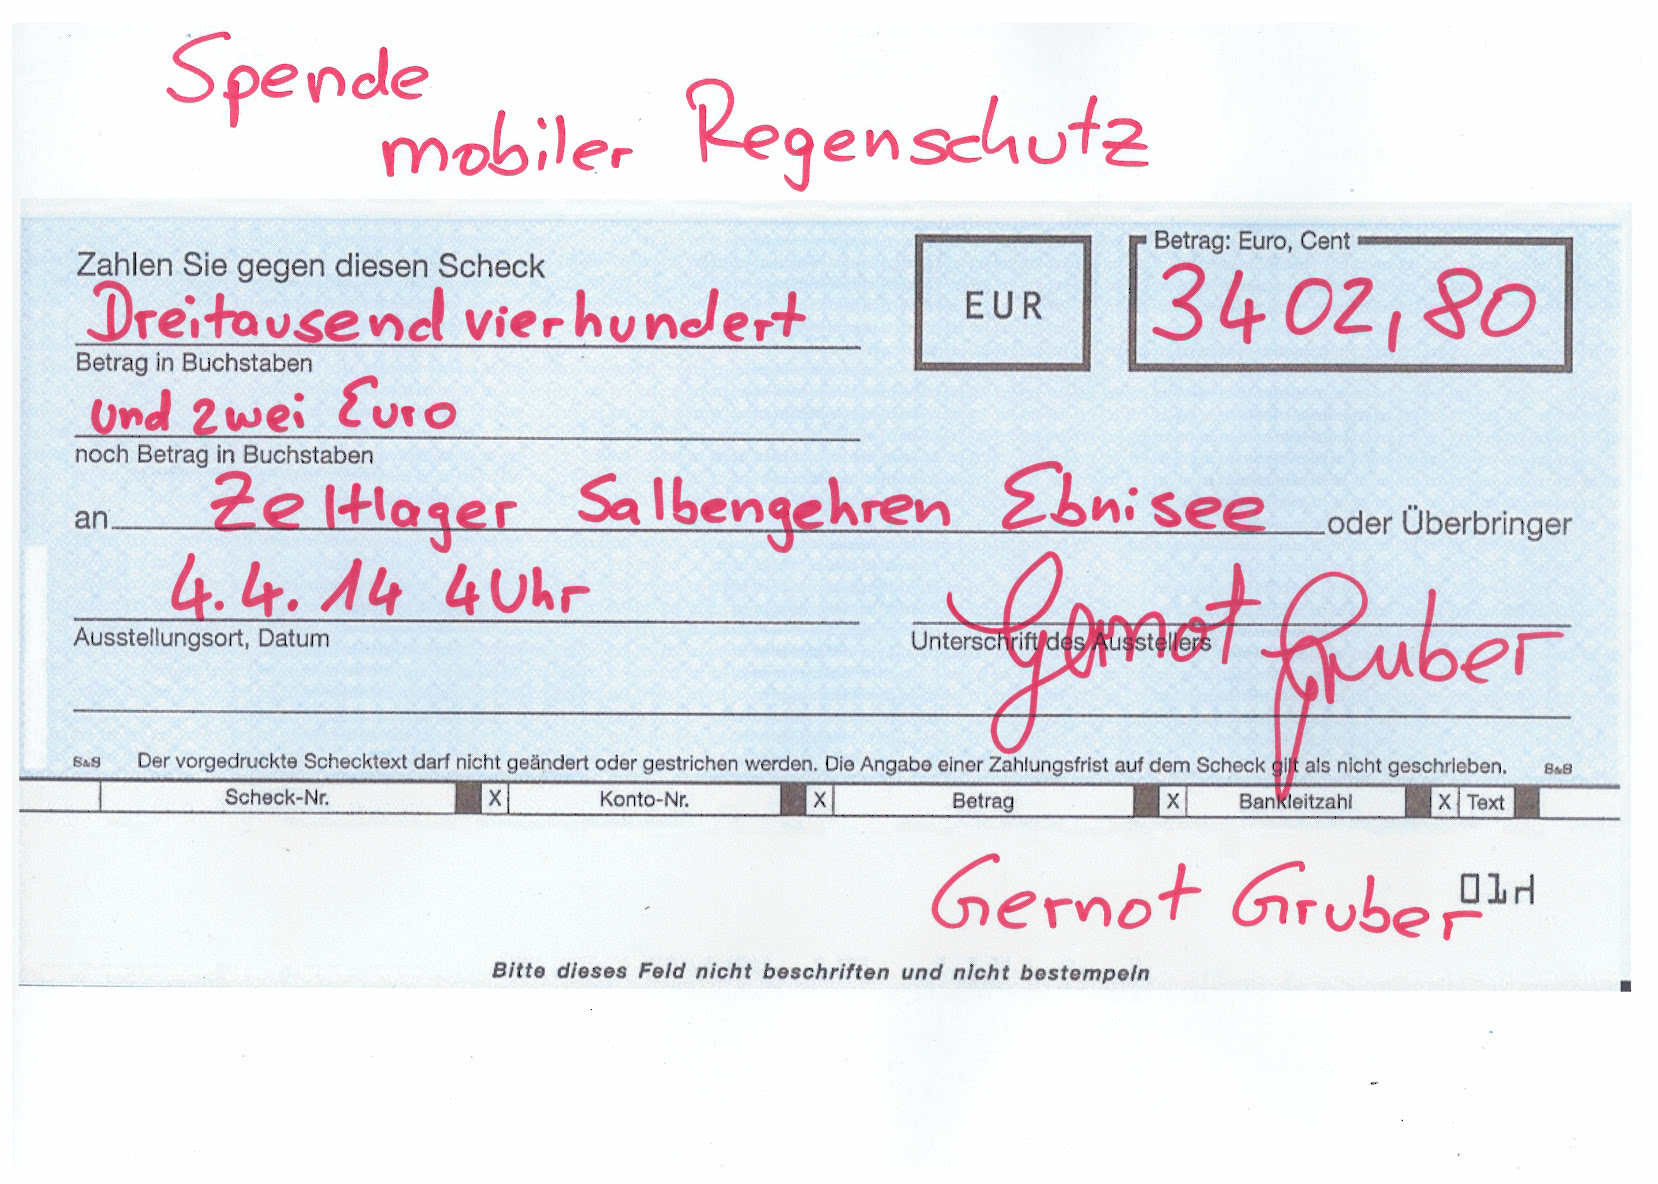 Spende
mobiler Regenschutz
Zahlen Sie gegen diesen Scheck
Dreitausend vierhundert
Betrag in Buchstaben
EUR
Betrag: Euro, Cent
3402,80
und zwei Euro
noch Betrag in Buchstaben
an Zeltlager Salbengehren Ebnisee oder Überbringer
4.4.14 4 Uhr
Ausstellungsort, Datum
Gernot Gruber
Unterschrift des Ausstellers
S&S Der vorgedruckte Schecktext darf nicht geändert oder gestrichen werden. Die Angabe einer Zahlungsfrist auf dem Scheck gilt als nicht geschrieben. S&S
Scheck-Nr. X Konto-Nr. X Betrag X Bankleitzahl X Text
Gernot Gruber 01H
Bitte dieses Feld nicht beschriften und nicht bestempeln